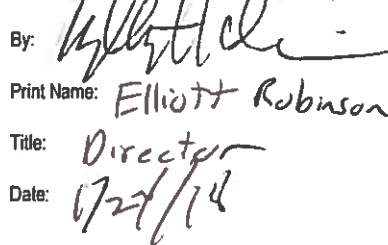 By:
Print Name: Elliott Robinson
Title: Director
Date: